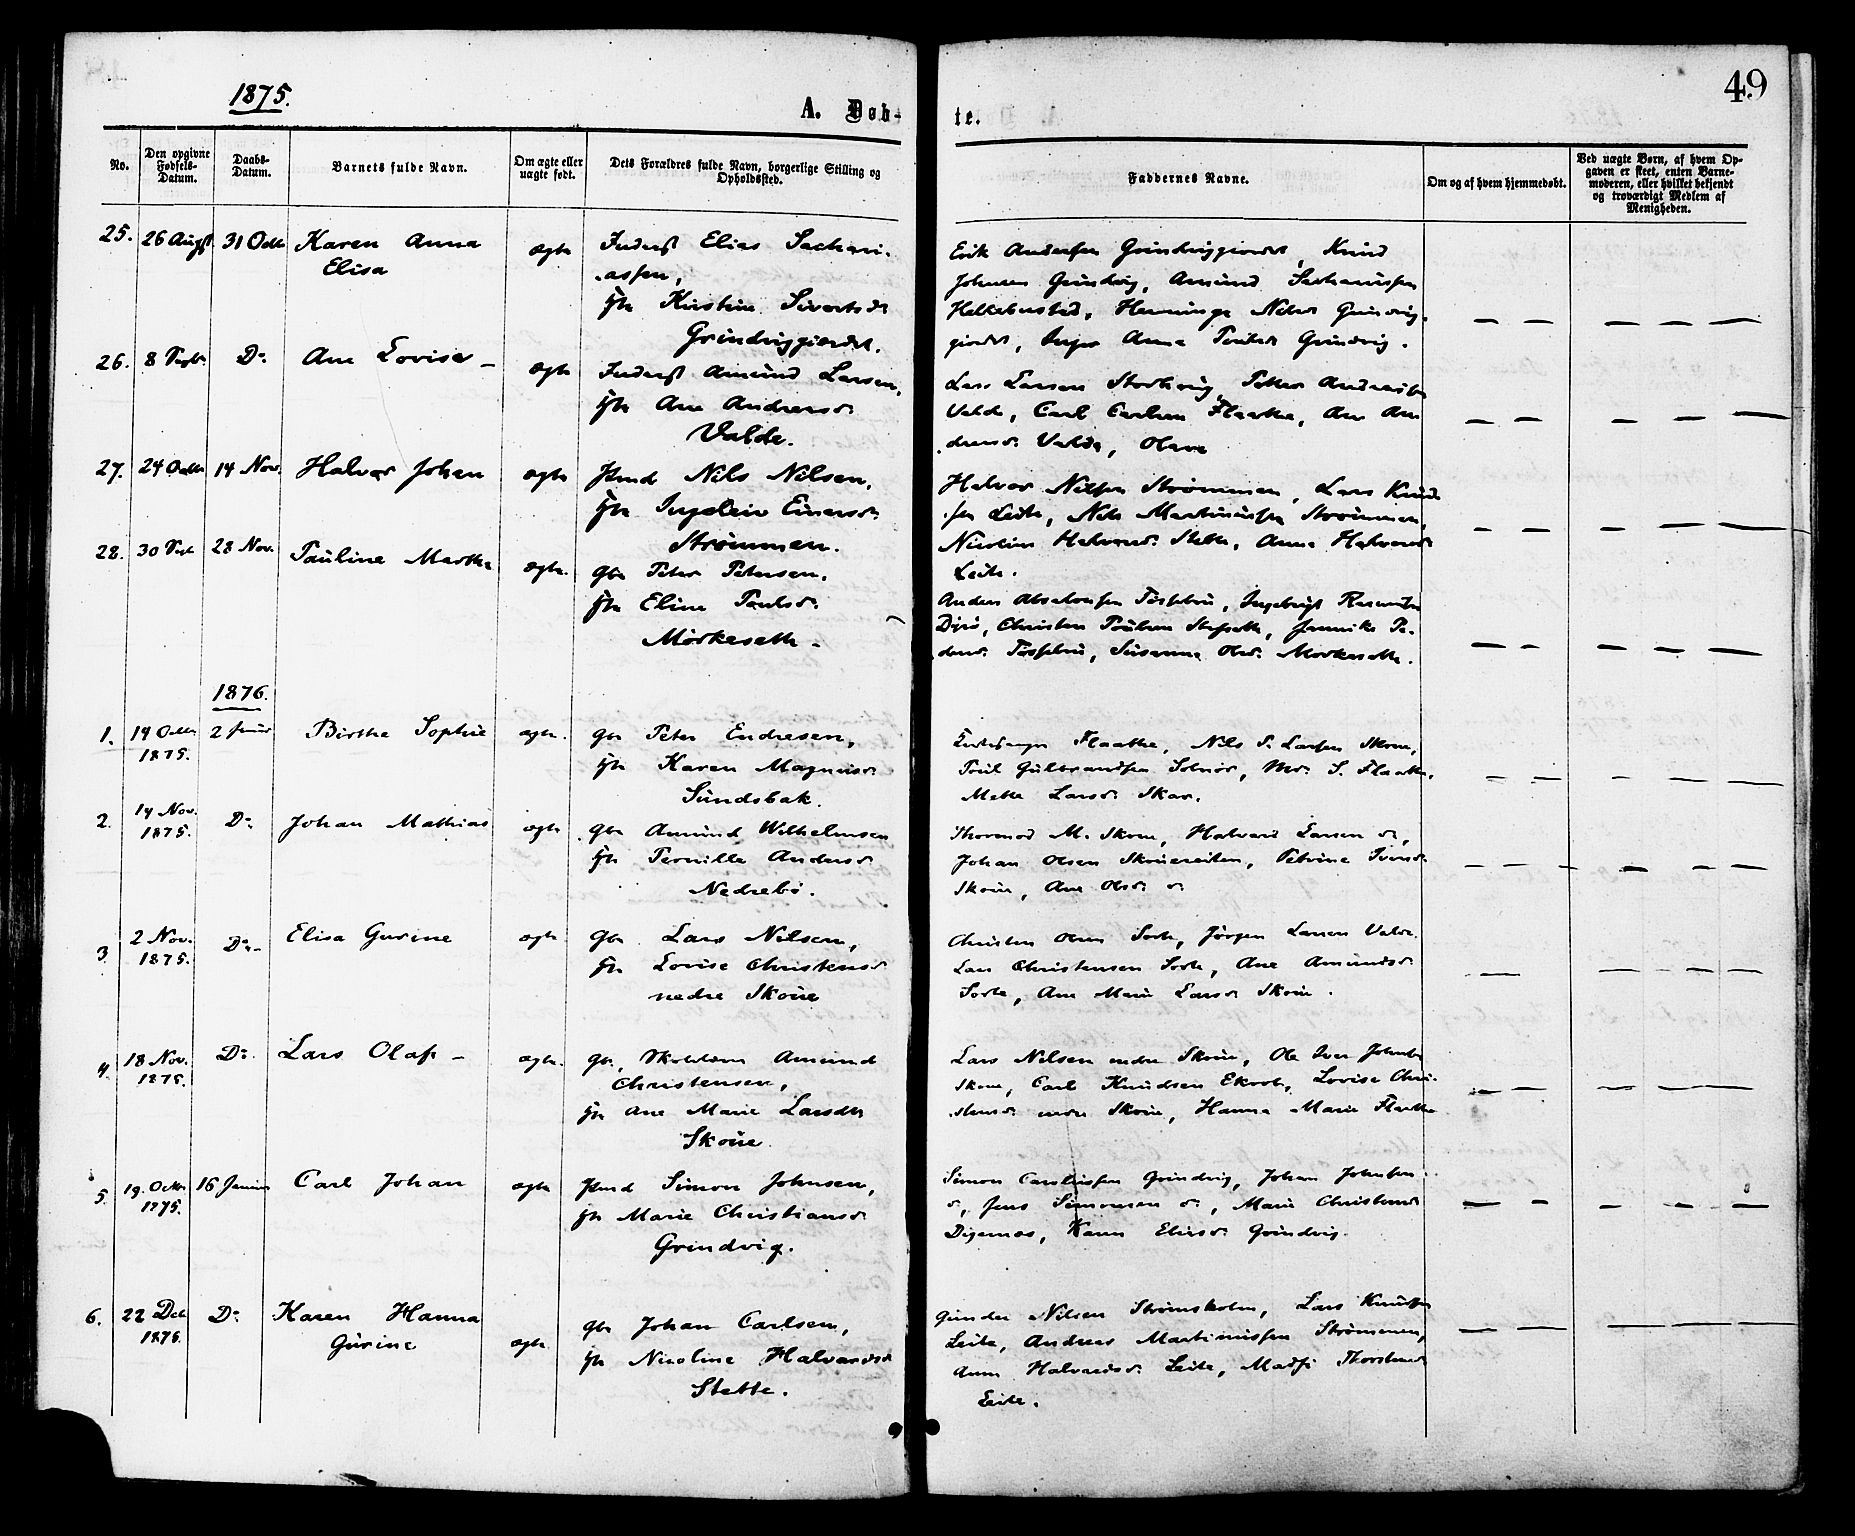 49
1875.
A. Døb-
te.
No.
Den opgivne Fødsels-Datum.
Daabs-Datum.
Barnets fulde Navn.
Om ægte eller uægte født.
Dets Forældres fulde Navn, borgerlige Stilling og Opholdssted.
Faddernes Navne.
Om og af hvem hjemmedøbt.
Ved uægte Børn, af hvem Op-
gaven er skeet, enten Barne-
moderen, eller hvilket bekjendt
og troværdigt Medlem af
Menigheden.
25. 26 Augst 31 Octb Karen Anna ægte Inderst Elias Sachari-
Elisa
assen,
Kirstine Sivertsdr
Grindviggjerdet.
Erik Andersen Grindviggjerdet, Knud
Johnsen Grindvig, Amund
Nilsdr Grindvig-
gjerdet, Anna Grindvig.
26. 8 Septb. Do Ane Lovise - ægte Inderst Amund Larsen,
Ane Andreasdr
Valde.
Lars Larsen Petter Andreassen
Valde, Carl Carlsen Flaathe, Ane An
dreasdr Valde,
27. 24 Octb 14 Nov. Halvar Johan ægte Nils Nilsen,
Einarsdr
Strømmen.
Halvar Nilsen Strømmen, Lars Knud
sen Leite, Nils Martinussen Strømmen,
Nicoline Halvardsdr Stette, Anna Halvardsdr
Leite.
28. 30 Sept 28 Nov. Pauline Marthe ægte. Gbr Peter Petersen,
Eline Paulsdr
Mørkesæth -
Anders Absalonsen Ingebrigt Rasmussen
Christen Poulsen Jennike Pe-
dersdr Susanne Olsdr Mørkesæth.
1876.
1. 14 Octb 2 Januar Birthe Sophie ægte. Gbr Peter Endresen,
1875.
Karen Magnusdr
Sundsbak.
Flaathe, Nils S. Larsen Skoue,
Poul Gulbrandsen Solnør, S. Flaathe,
Mette Larsdr Skar.
2. 14 Nov. Do Johan Mathias ægte Gbr Amund Wilhelmsen
1875.
Pernille Andersdr
Nedrebø.
Thormod M. Skoue, Halvard Larsen do,
Johan Olsen Skouereiten, Petrine Iversdr
Skoue, Ane Olsdr do.
3 2 Nov. Do - Elisa Gurine ægte Gbr Lars Nilsen,
1875.
Lovise Christensdr
nedre Skoue
Christen Olsen Sorte, Jørgen Larsen Valde.
Lars Christensen Sorte, Ane Amundsdr
Sorte, Ane Marie Larsdr Skoue.
4. 18 Nov. Do. Lars Olaf - ægte. Gbr, Skolelærer Amund
1875.
Christensen,
Ane Marie Larsdtr
Skoue
Lars Nilsen nedre Skoue, Ole Iver Johnsen
Skoue, Carl Knudsen Ekrot, Lovise Chri-
stensdr nedre Skoue, Hanna Marie Flaathe
5. 19. Octbr 16 Januar Carl Johan ægte Simon Johnsen,
1875.
Marie Christiansdr
Grindvig.
Simon Carolussen Grindvig, Johan Johnsen
do, Jens Simonsen do, Marie Christensdr
Digernæs, Karen Eliasdr Grindvig.
6. 22 Dcb Do Karen Hanna ægte Gbr Johan Carlsen,
1875.
Gurine
Nicoline Halvardsdr
Stette.
Gunder Nilsen Strømsholm, Lars Knudsen
Leite, Andreas Martinussen Strømmen,
Anne Halvardsdr Leite, Thorstensdr
Leite.